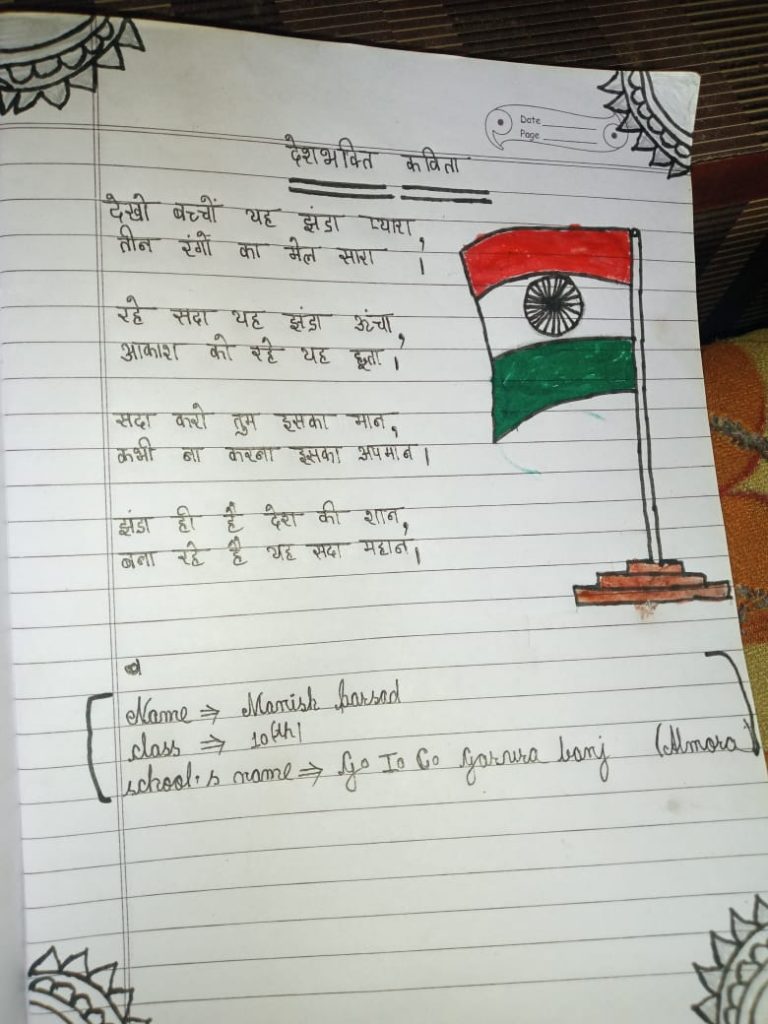 Date
Page
देशभक्ति कविता
देखो बच्चों यह झंडा प्यारा,
तीन रंगों का मेल सारा ।
रहे सदा यह झंडा ऊंचा,
आकाश को रहे यह छूता ।
सदा करो तुम इसका मान,
कभी ना करना इसका अपमान ।
झंडा ही है देश की शान,
बना रहे है यह सदा महान ।
Name ⇒ Manish parsad
class ⇒ 10(th)
school's name ⇒ Go Io Co Garura banj (Almora)